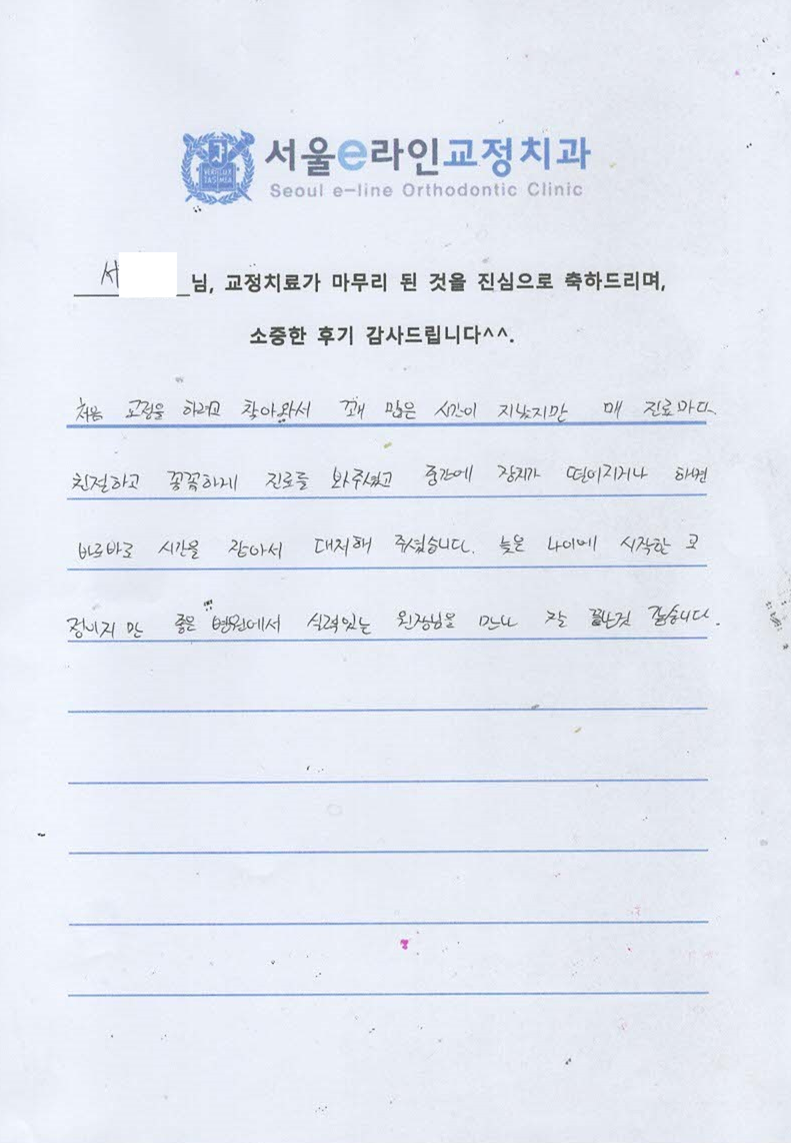 서울e라인교정치과
Seoul e-line Orthodontic Clinic
서 님, 교정치료가 마무리 된 것을 진심으로 축하드리며,
소중한 후기 감사드립니다^^.
처음 교정을 하려고 찾아와서 꽤 많은 시간이 지났지만 매 진료마다
친절하고 꼼꼼하게 진료를 봐주셨고 중간에 장치가 떨어지거나 하면
바로바로 시간을 잡아서 대처해 주셨습니다. 늦은 나이에 시작한 교
정이지만 좋은 병원에서 실력있는 원장님을 만나 잘 끝난것 같습니다.